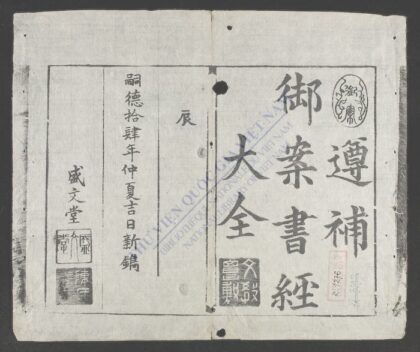 遵補
御案書經
大全
辰
嗣德拾肆年仲夏吉日新鐫
盛文堂
THƯ VIỆN QUỐC GIA VIỆT NAM